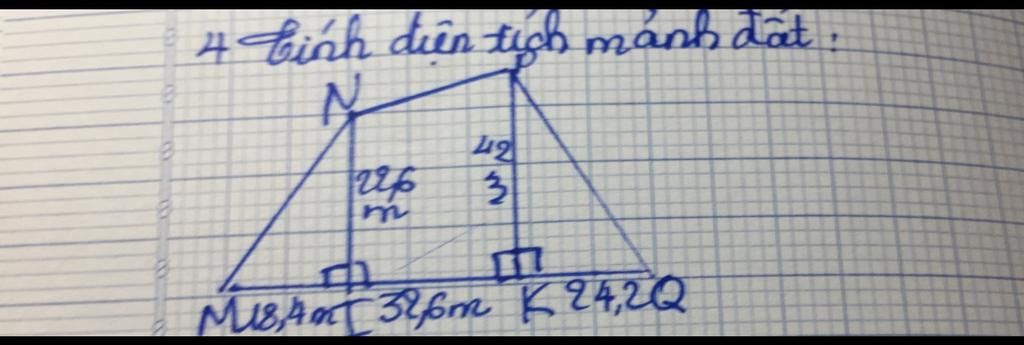 4 Tính diện tích mảnh đất :
N
P
22,6
m
42
3
M 18,4m I 32,6m K 24,2 Q